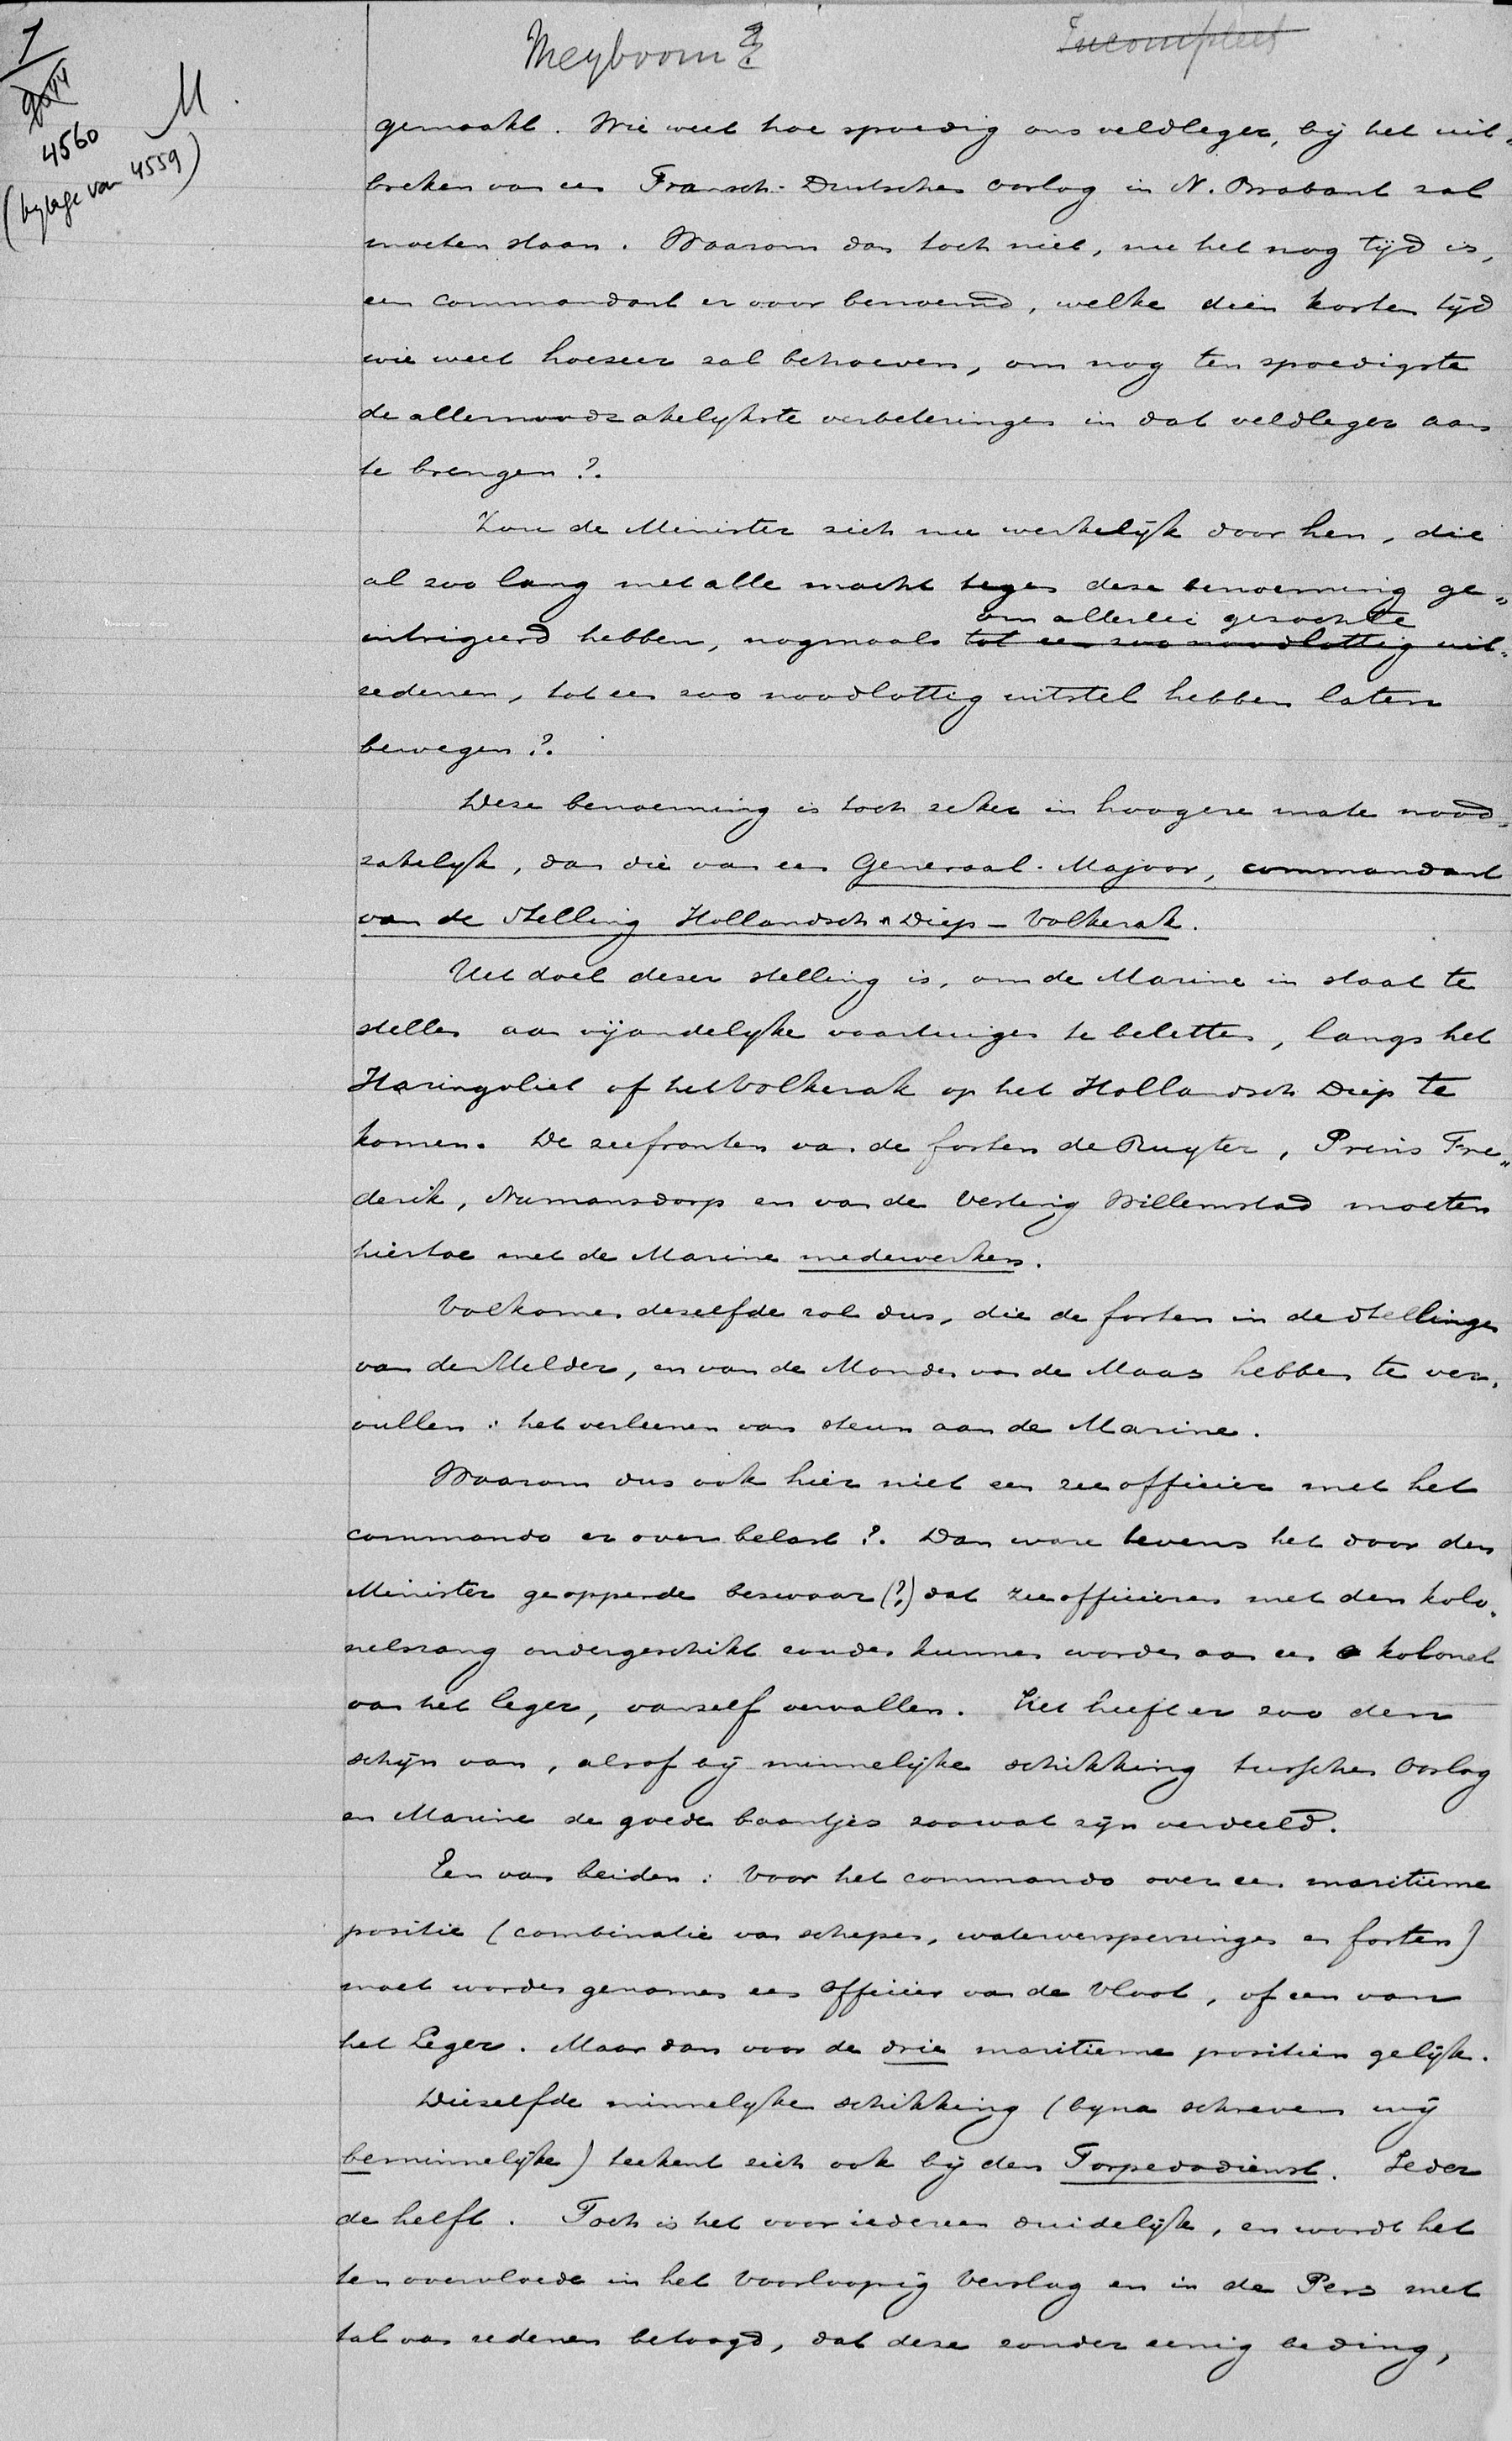 1
Meyboom?
Incompleet
M.
4560
(bylage van 4559)
gemaakt. Wie weet hoe spoedig ons veldleger, bij het uit=
breken van een Fransch-Duitschen oorlog in N. Brabant zal
moeten staan. Waarom dan toch niet, nu het nog tijd is,
een commandant er voor benoemd, welke dien korten tijd
wie weet hoezeer zal behoeven, om nog ten spoedigste
de allernoodzakelijkste verbeteringen in dat veldleger aan
te brengen?.
Zou de Minister zich nu werkelijk door hen, die
al zoo lang met alle macht tegen deze benoeming ge=
om allerlei gezochte
intrigeerd hebben, nogmaals tot een zoo noodlottig uit=
redenen, tot een zoo noodlottig uitstel hebben laten
bewegen?.
Deze benoeming is toch zeker in hoogere mate nood=
zakelijk, dan die van een Generaal-Majoor, commandant
van de Stelling Hollandsch Diep - Volkerak.
Het doel dezer stelling is, om de Marine in staat te
stellen aan vijandelijke vaartuigen te beletten, langs het
Haringvliet of het Volkerak op het Hollandsch Diep te
komen. De zeefronten van de forten de Ruyter, Prins Fre=
derik, Numansdorp en van de Vesting Willemstad moeten
hiertoe met de Marine medewerken.
Volkomen dezelfde rol dus, die de forten in de Stellingen
van den Helder, en van de Monden van de Maas hebben te ver=
vullen: het verleenen van steun aan de Marine.
Waarom dus ook hier niet een zeeofficier met het
commando er over belast?. Dan ware tevens het door den
Minister geopperde bezwaar (?) dat zeeofficieren met den kolo=
nelsrang ondergeschikt zouden kunnen worden aan een kolonel
van het leger, vanzelf vervallen. Het heeft er zoo den
schijn van, alsof bij minnelijke schikking tusschen Oorlog
en Marine de goede baantjes zoowat zijn verdeeld.
Een van beiden: voor het commando over een maritieme
positie (combinatie van schepen, waterversperringen en forten)
moet worden genomen een officier van de Vloot, of een van
het Leger. Maar dan voor de drie maritieme positiën gelijk.
Diezelfde minnelijke schikking (bijna schreven wij
beminnelijke) teekent zich ook bij den Torpedodienst. Ieder
de helft. Toch is het voor iedereen duidelijk, en wordt het
ten overvloede in het Voorloopig Verslag en in de Pers met
tal van redenen betoogd, dat deze zonder eenig beding,